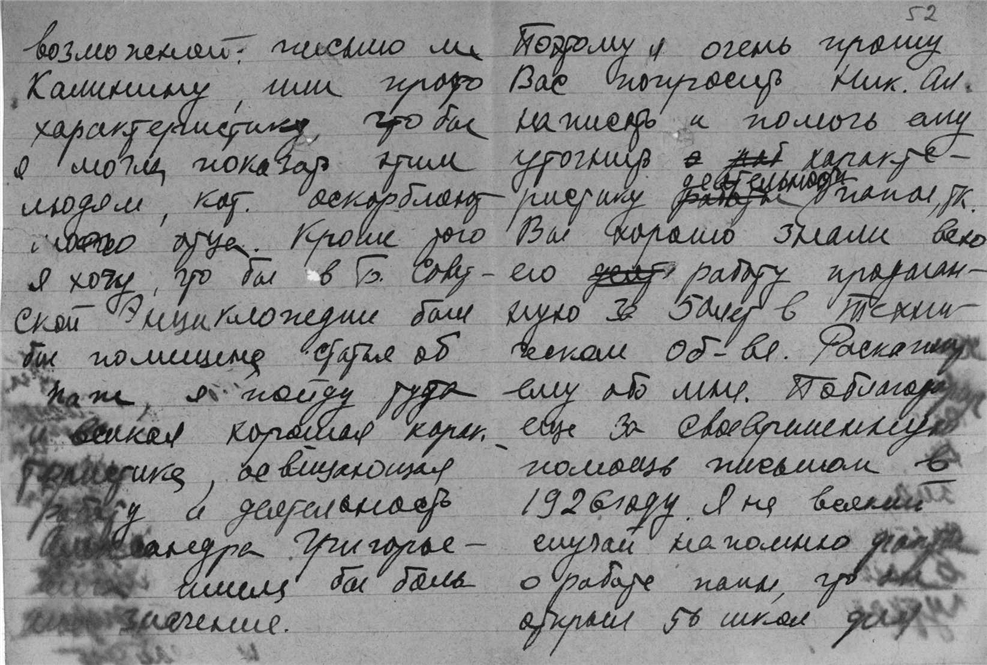 52
возможной: письмо ли
Калинину, или просто
характеристику, что бы
я могла показать этим
людям, кот. оскорбляют
отца. Кроме того
я хочу, что бы в Б. Совет-
ской Энциклопедии была
бы помещена статья об
папе, я пойду туда
и всякая хорошая харак-
теристика, освещающая
работу и деятельность
Александра Григорье-
имела бы боль
значение.
Поэтому я очень прошу
Вас попросить Ник. Ал.
написать и помочь ему
уточнить характе-
ристику деятельности папы, т.к.
Вы хорошо знали всю
его работу продолжен-
ную за 50 лет в Техни-
ческом Об-ве. Раскажите
ему обо мне. Поблагодар
еще за своевременную
помощь письмом в
1926 году. Я на всякий
случай напомню
о работе папы, что он
открыл 56 школ для